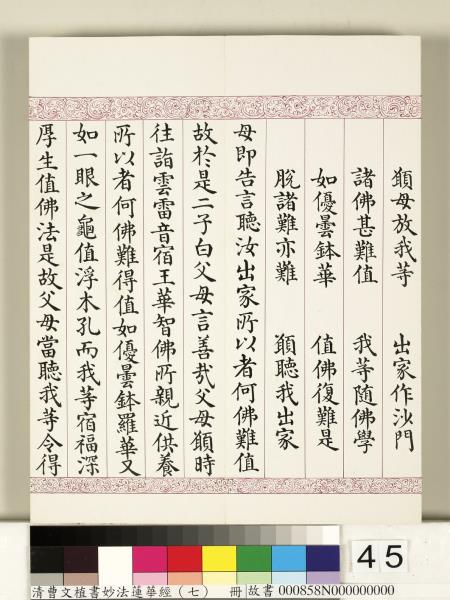 願母放我等　出家作沙門
諸佛甚難值　我等隨佛學
如優曇鉢華　值佛復難是
脫諸難亦難　願聽我出家
母即告言聽汝出家所以者何佛難值
故於是二子白父母言善哉父母願時
往詣雲雷音宿王華智佛所親近供養
所以者何佛難得值如優曇鉢羅華又
如一眼之龜值浮木孔而我等宿福深
厚生值佛法是故父母當聽我等令得
45
清曹文植書妙法蓮華經(七)　冊 故書 000858N000000000